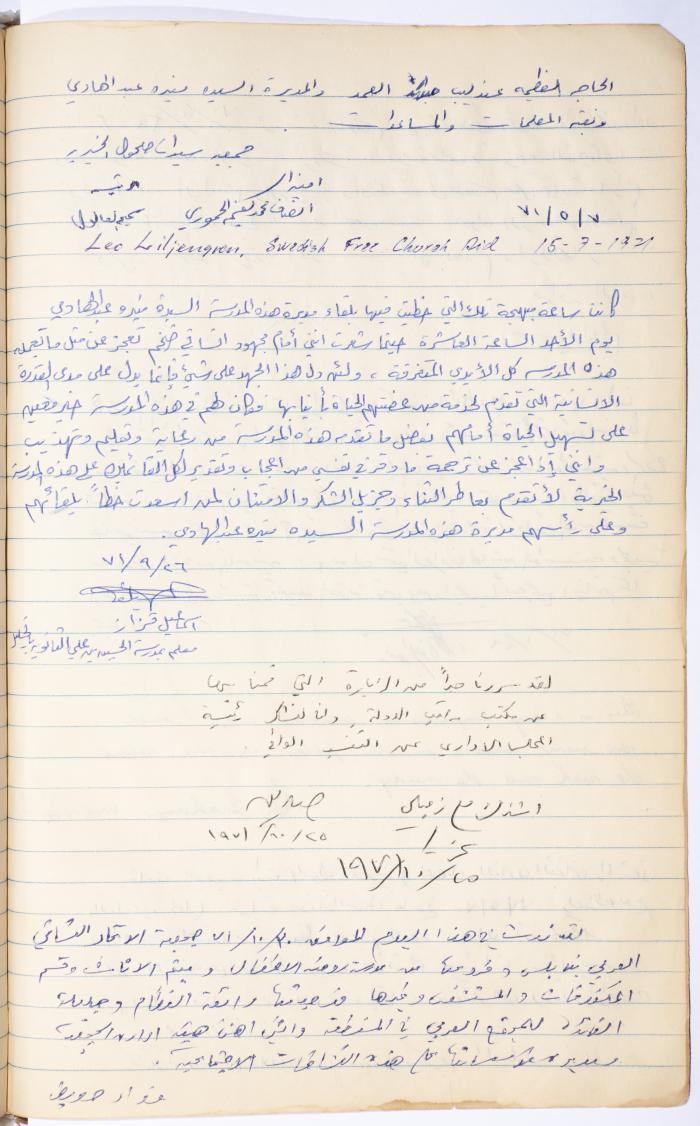 الحاجه عندليب العمد والمديرة السيده منيره عبد الهادي
وبقية المعلمات والمساعدات .
جمعية سيدات الخيرية
امينة السر رئيسة
٧١/٥/٧
Leo Liljengren, Swedish Free Church Aid 15-7-1971
كانت ساعة مبهجة تلك التي حظيت فيها بلقاء مديرة هذه المدرسة السيدة منيره عبد الهادي
يوم الأحد الساعة العاشرة حينما شعرت انني أمام مجهود انساني ضخم تعجز عن مثل ما تعمله
هذه المدرسه كل الأيدي المتفرقة ، ولئن دل هذا الجهد على شيئ فإنما يدل على مدى القدرة
الانسانية التي تقدم لخدمة من عضتهم الحياة بأنيابها فكان لهم في هذه المدرسة خير معين
على تسهيل الحياة أمامهم بفضل ما تقدمه هذه المدرسة من رعاية وتعليم وتهذيب
وانني إذ اعجز عن ترجمة ما وقر في نفسي من اعجاب وتقدير لكل القائمين على هذه المدرسة
الخيرية لأتقدم بعاطر الثناء وجزيل الشكر والامتنان لمن اسعدت حظاً بلقائهم
وعلى رأسهم مديرة هذه المدرسة السيده منيره عبد الهادي .
٧١/٩/٢٦
اسماعيل قزاز
معلم بمدرسة الحسين بن علي الثانوية بالخليل
لقد سررنا جداً من الزيارة التي قمنا بها
عن مكتب مراقب الدولة ولنا لنشكر رئيسة
المجلس الاداري عن التفسير الوافي
اشترك مع زميلي
١٩٧١/١٠/٢٥
١٩٧١/١٠/٢٥
لقد زرت في هذا اليوم الموافق ٧١/١٠/٣٠ جمعية الاتحاد النسائي
العربي بنابلس وفروعها من مدرسة روضة الاطفال وميتم الاناث وقسم
المكفوفات والمستشفى
الفائدة للمجتمع العربي في المنطقة وانني اهنئ هيئة ادارة الجمعية
على هذه النشاطات الاجتماعية .
فؤاد